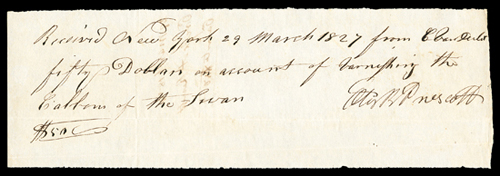 Received New York 29 March 1827 from C VanDerbilt
fifty Dollars on account of Varnishing the
Cabbons of the Swan
Prescott
$50